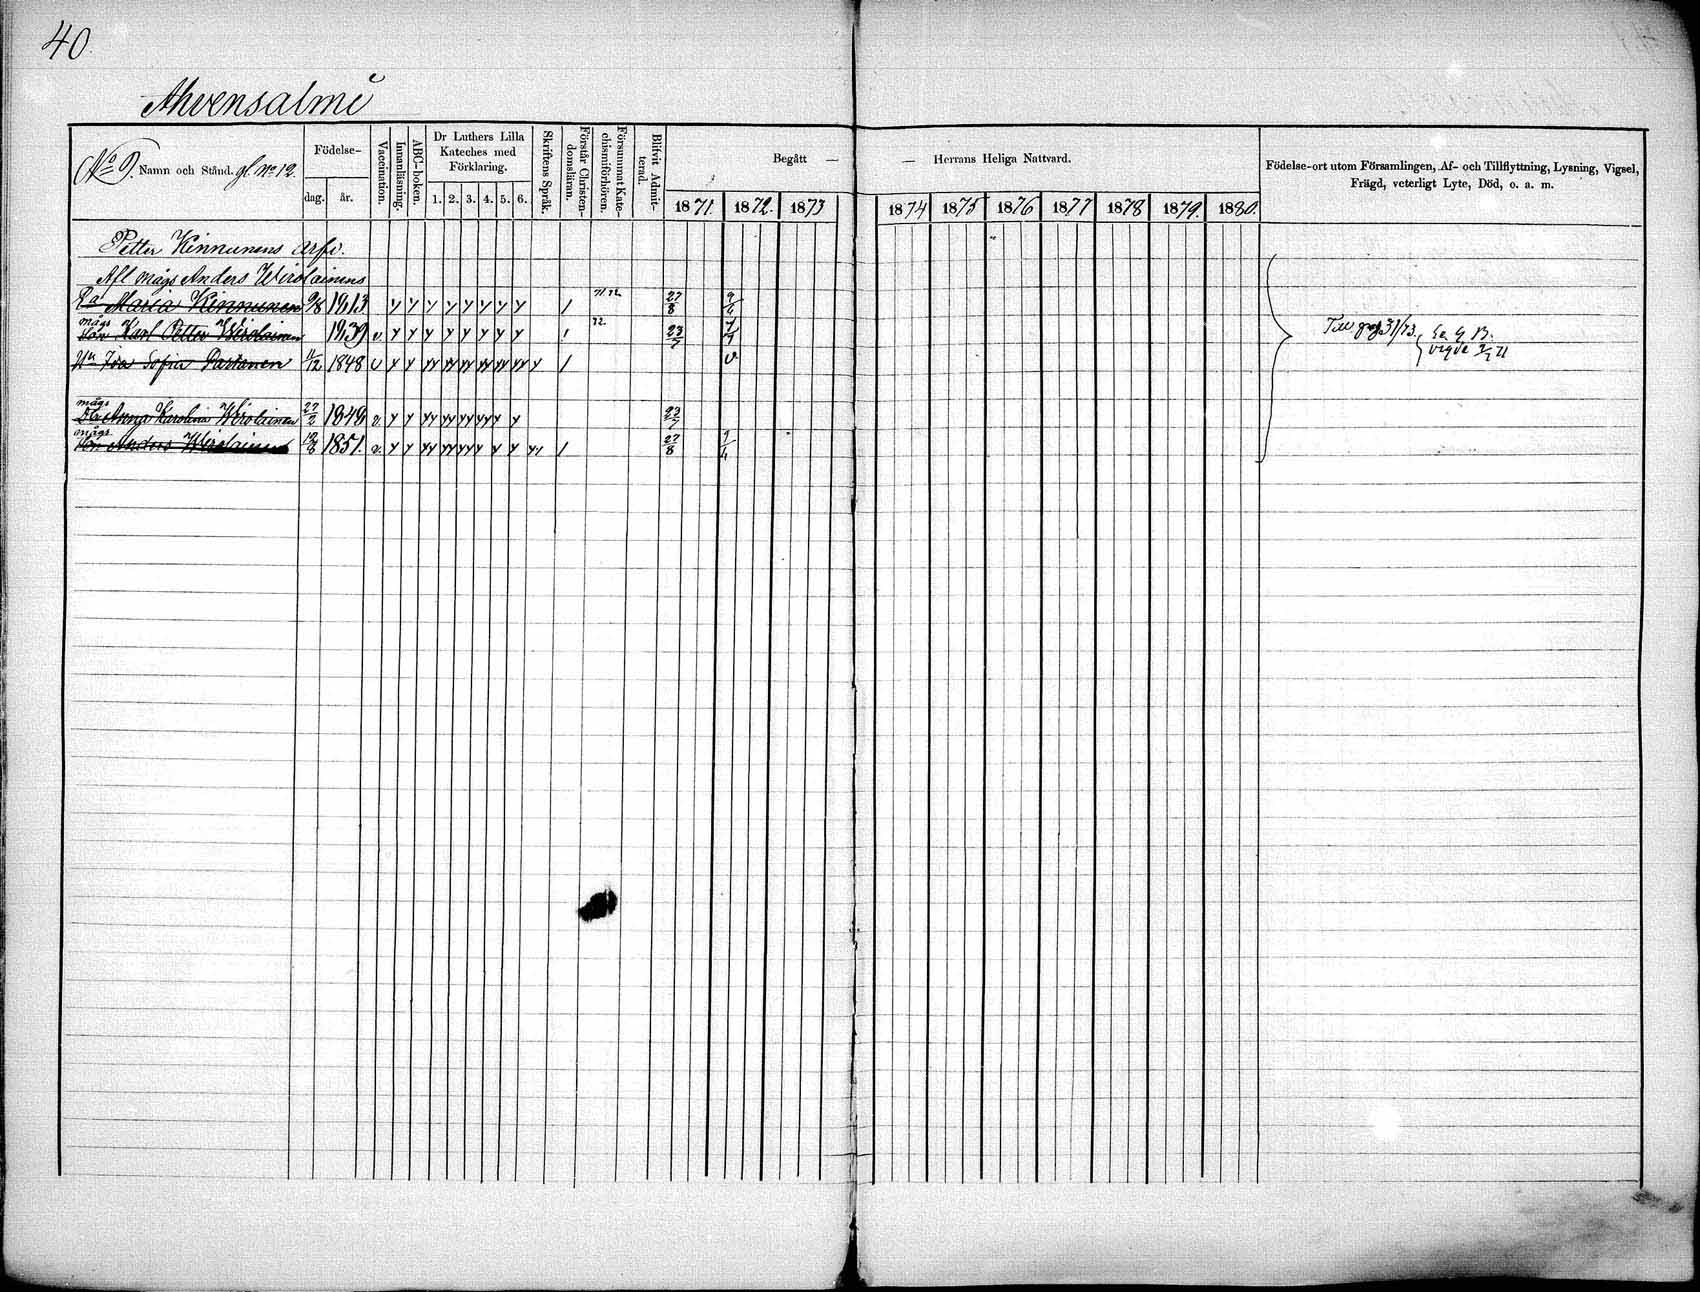 40.
Ahvensalmi
No 9. Namn och Stånd. gl. No 12.
Födelse-
dag. år.
Vaccination.
Innanläsning.
ABC-boken.
Dr Luthers Lilla
Kateches med
Förklaring.
1. 2. 3. 4. 5. 6.
Skriftens Språk.
Förstår Christen-
domsläran.
Försummat Kate-
chismiförhören.
Blifvit Admit-
terad.
Begått — — Herrans Heliga Nattvard.
1871. 1872. 1873 1874 1875 1876 1877 1878 1879. 1880.
Födelse-ort utom Församlingen, Af- och Tillflyttning, Lysning, Vigsel,
Frägd, veterligt Lyte, Död, o. a. m.
Petter Kinnunens arfv.
Afl mågs Anders Wirolainens
Ea Maria Kinnunen 9/8 1813 y y y y y y y y / 71.72. 27/8 9/4
mågs
son Karl Petter Wirolainen 1839 v. y y y y y y y y / 72. 23/7 7/7 Till pag 31/73.
Hu Ida Sofia Partanen 11/12 1848 v y y yy yy yy yy yy yy y / v vigde
mågs
Dr Anna Karolina Wirolainen 27/2 1849 v. y y yy yy yy yy y y 23/7
mågs
son Anders Wirolainen 1851. v. y y yy yy yy y y y yy / 27/8 9/4